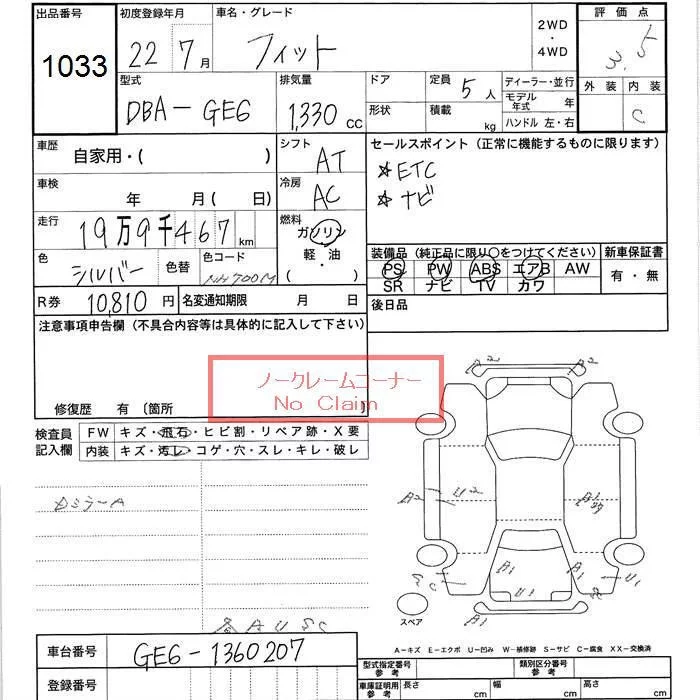 出品番号
1033
初度登録年月
22 7月
車名・グレード
フィット
2WD
・
4WD
評価点
3.5
外装 内装
C
型式
DBA-GE6
排気量
1,330 CC
ドア
形状
定員 5人
積載 kg
ディーラー・並行
モデル年式 年
ハンドル 左・右
車歴
自家用・( )
シフト
AT
セールスポイント (正常に機能するものに限ります)
☆ETC
☆ナビ
車検
年 月 ( 日)
冷房
AC
走行
19万9千467 km
燃料
ガソリン
軽・油
( ・ )
色
シルバー
色替
色コード
NH700M
装備品 (純正品に限り〇をつけてください)
PS PW ABS エアB AW
SR ナビ TV カワ
新車保証書
有・無
R券 10,810 円
名変通知期限 月 日
後日品
注意事項申告欄 (不具合内容等は具体的に記入して下さい)
ノークレームコーナー
No Claim
修復歴 有 〔箇所 〕
検査員
記入欄
FW キズ・飛石・ヒビ割・リペア跡・X要
内装 キズ・汚レ・コゲ・穴・スレ・キレ・破レ
A2 A2
A2 U2
A1
A1 A1
U1 U1
スペア
A-キズ E-エクボ U-凹み W-補修跡 S-サビ C-腐食 XX-交換済
車台番号
GE6-1360207
登録番号
型式指定番号
参考
類別区分番号
参考
車庫証明用
参考
長さ cm
幅 cm
高さ cm